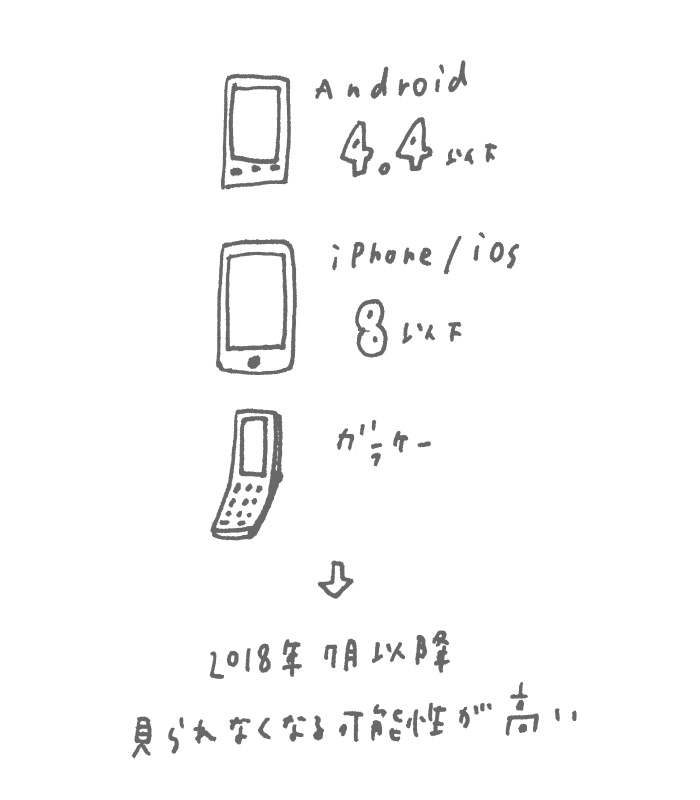 Android
4.4以下
iPhone/iOS
8以下
ガラケー
2018年7月以降
見られなくなる可能性が高い